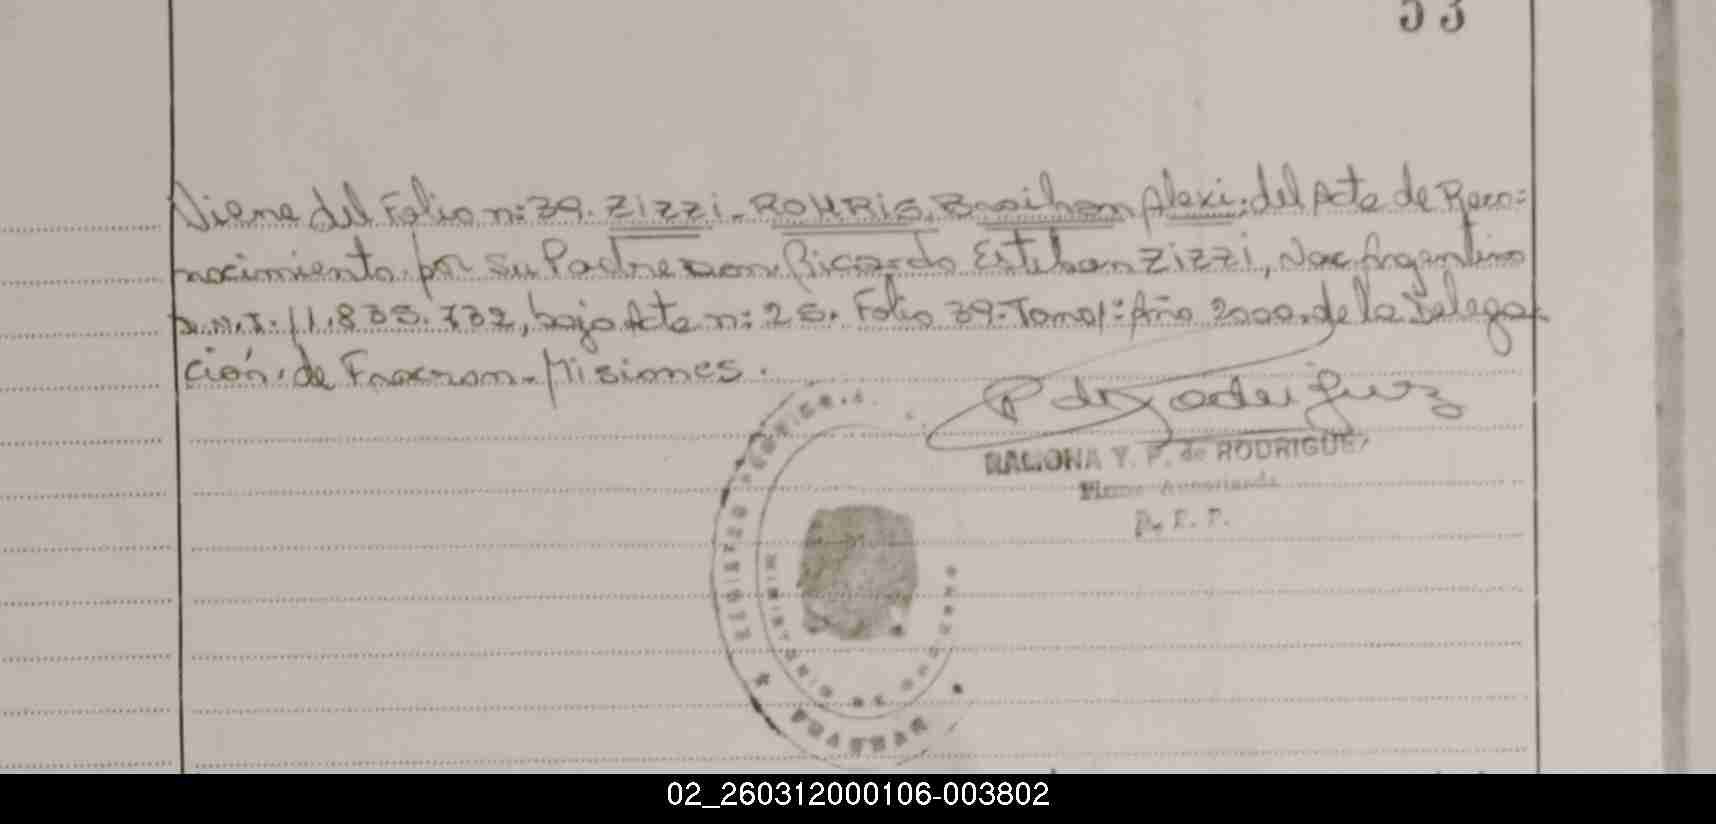 53
Viene del Folio n: 39. ZIZZI - ROHRIG, Braihan Alexi: del Acta de Reco=
nocimiento por su Padre don Ricardo Esteban ZIZZI, Nac. Argentino
D.N.I. 11.835.732, bajo Acta n: 25. Folio 39. Tomo 1: Año 2000. de la Delega-
ción de Fracran - Misiones.
RAMONA Y. P. de RODRIGUEZ
Firma Autorizada
D. R. P.
02_260312000106-003802